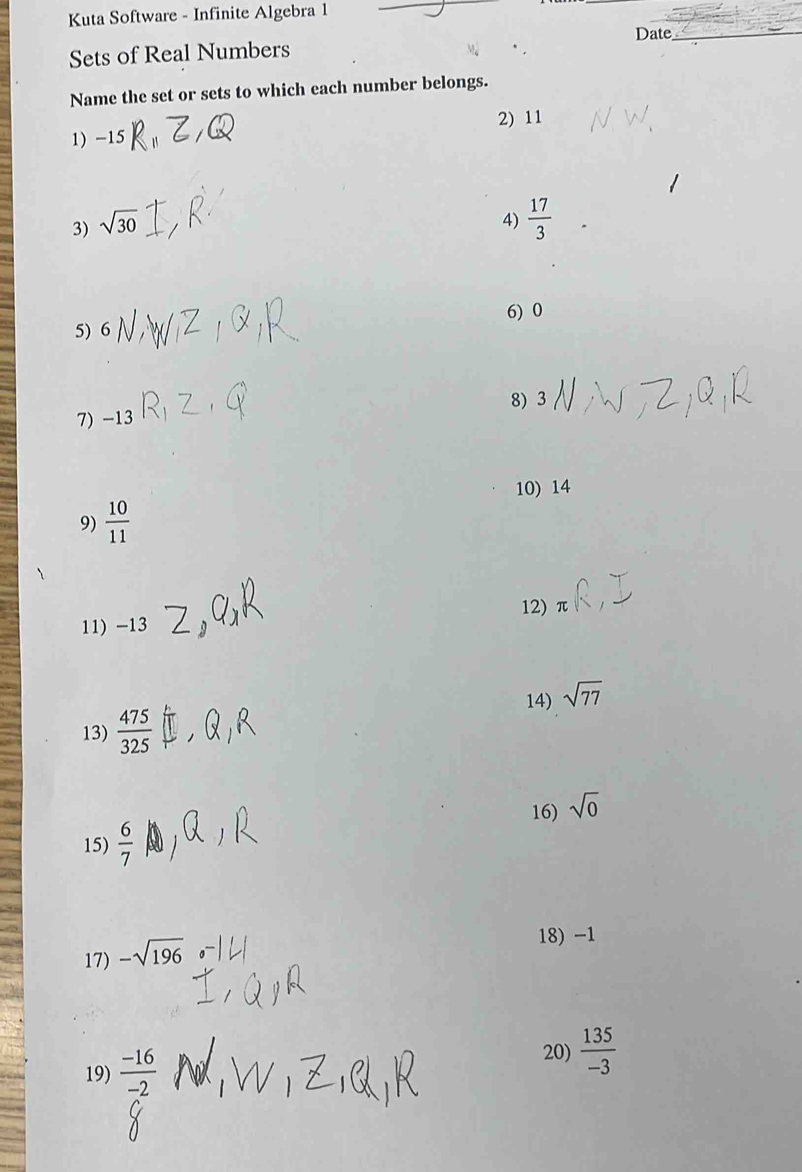 Kuta Software - Infinite Algebra 1
Date
Sets of Real Numbers
Name the set or sets to which each number belongs.
1) −15 R,, Z, Q
2) 11 N W,
3) √30 I, R
4) 17/3
5) 6 N, W, Z, Q, R
6) 0
7) −13 R, Z, Q
8) 3 N, W, Z, Q, R
9) 10/11
10) 14
11) −13 Z, Q, R
12) π R, I
13) 475/325 , Q, R
14) √77
15) 6/7 , Q, R
16) √0
17) −√196 -14
I, Q, R
18) −1
19) −16/−2 N, W, Z, Q, R
8
20) 135/−3